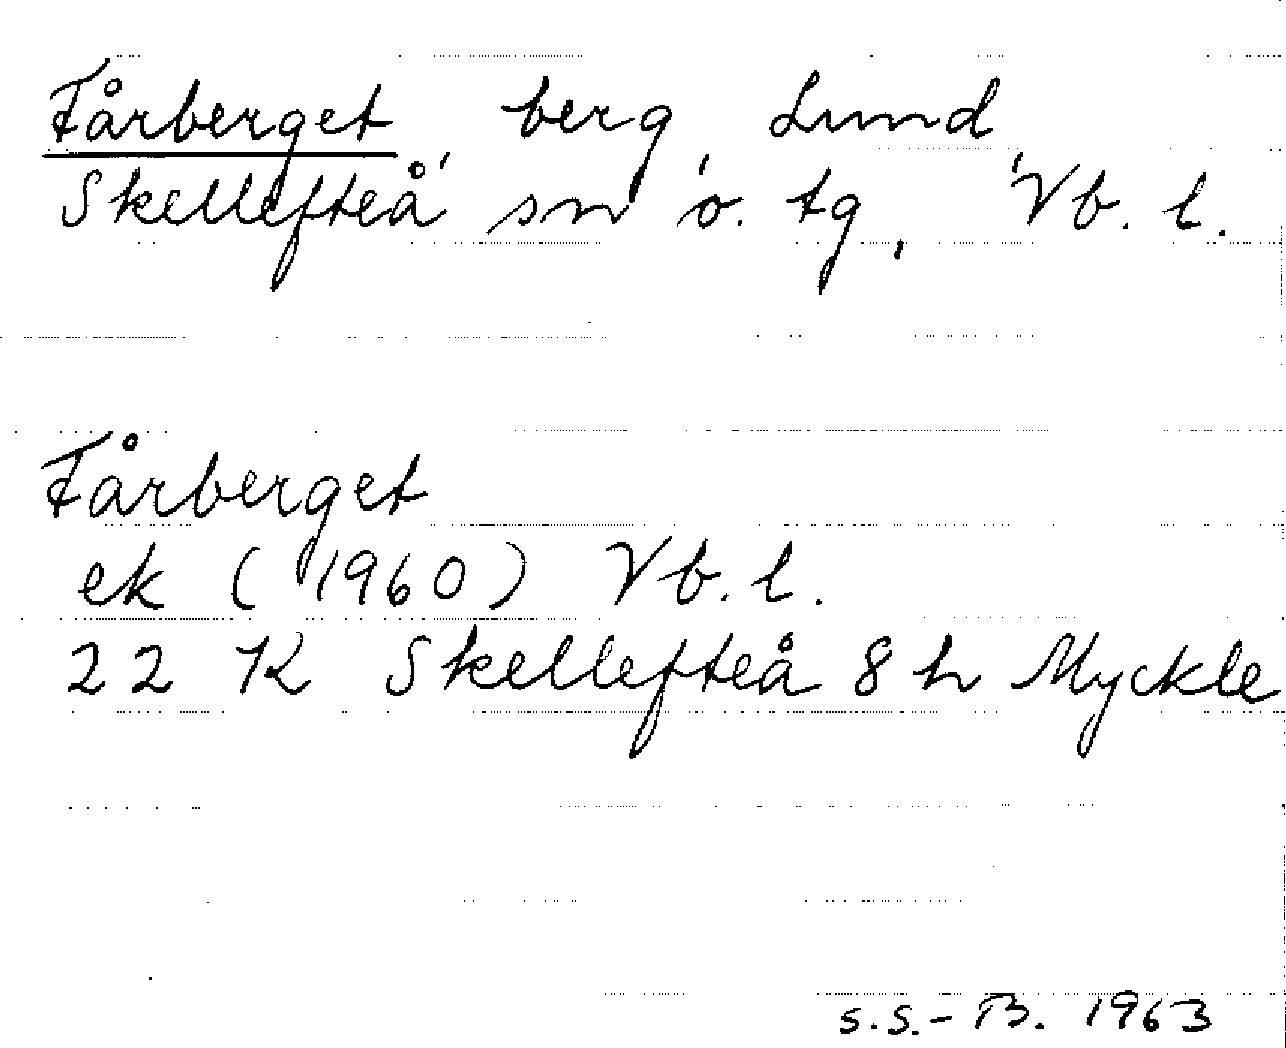 Fårberget, berg, Lund,
Skellefteå sn o. tg, Vb. l.
Fårberget
ek (1960) Vb. l.
22 K Skellefteå 8 h Myckle
S.S.-B. 1963